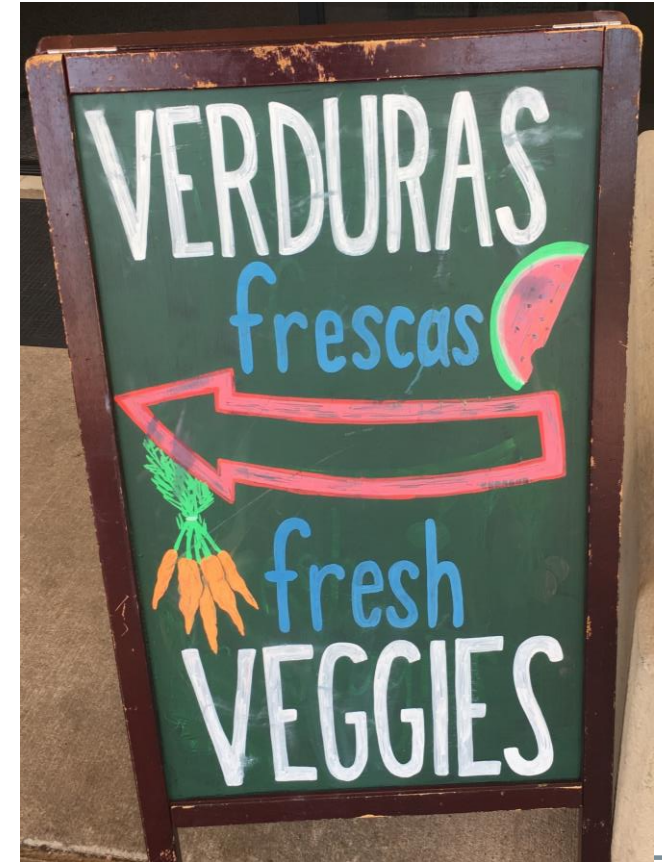 VERDURAS
frescas
fresh
VEGGIES